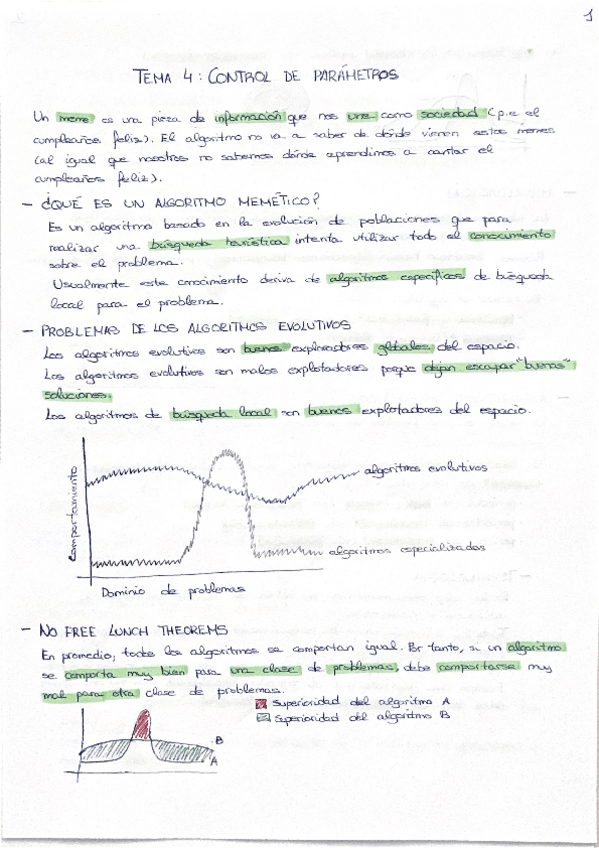 1
TEMA 4: CONTROL DE PARÁMETROS
Un meme es una pieza de información que nos une como sociedad (p.e el
cumpleaños feliz). El algoritmo no va a saber de dónde vienen estos memes
(al igual que nosotros no sabemos dónde aprendimos a cantar el
cumpleaños feliz).
- ¿QUÉ ES UN ALGORITMO MEMÉTICO?
Es un algoritmo basado en la evolución de poblaciones que para
realizar una búsqueda heurística intenta utilizar todo el conocimiento
sobre el problema.
Usualmente este conocimiento deriva de algoritmos específicos de búsqueda
local para el problema.
- PROBLEMAS DE LOS ALGORITMOS EVOLUTIVOS
Los algoritmos evolutivos son buenos exploradores globales del espacio.
Los algoritmos evolutivos son malos explotadores porque dejan escapar "buenas"
soluciones.
Los algoritmos de búsqueda local son buenos explotadores del espacio.
Comportamiento
algoritmos evolutivos
algoritmos especializados
Dominio de problemas
- NO FREE LUNCH THEOREMS
En promedio, todos los algoritmos se comportan igual. Por tanto, si un algoritmo
se comporta muy bien para una clase de problemas, debe comportarse muy
mal para otra clase de problemas.
Superioridad del algoritmo A
Superioridad del algoritmo B
B
A